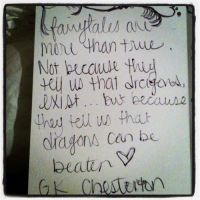 fairytales are
more than true.
Not because they
tell us that dragons
exist... but because
they tell us that
dragons can be
beaten ♡
GK Chesterton